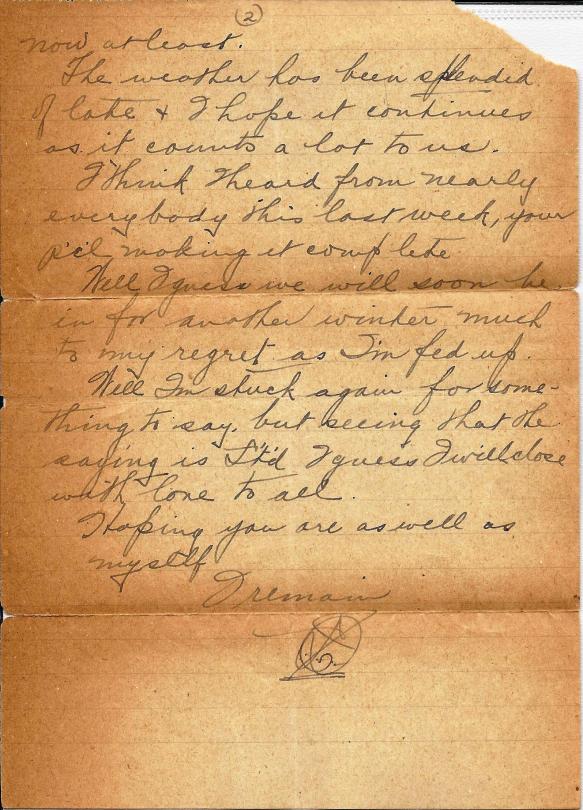 2
now at least.
The weather has been splendid
of late & I hope it continues
as it counts a lot to us.
I think I heard from nearly
everybody this last week, your
p'c'l making it complete
Well I guess we will soon be
in for another winter much
to my regret as I'm fed up.
Well I'm stuck again for some-
thing to say, but seeing that the
saying is Lt'd I guess I will close
with love to all.
Hoping you are as well as
myself
I remain